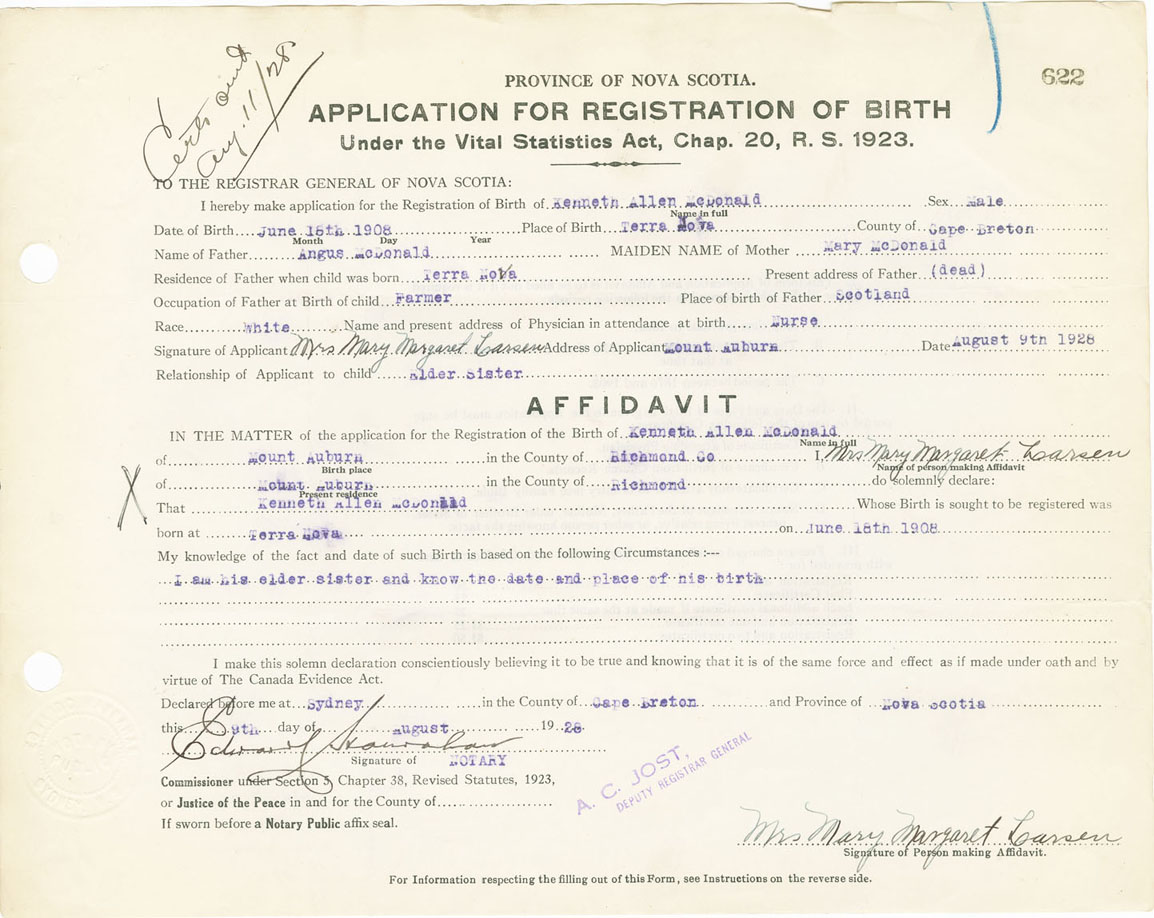 Certs sent
Aug. 11/28
622
PROVINCE OF NOVA SCOTIA.
APPLICATION FOR REGISTRATION OF BIRTH
Under the Vital Statistics Act, Chap. 20, R. S. 1923.
TO THE REGISTRAR GENERAL OF NOVA SCOTIA:
I hereby make application for the Registration of Birth of Kenneth Allen McDonald Sex Male
Name in full
Date of Birth June 15th 1908 Place of Birth Terra Nova County of Cape Breton
Month Day Year
Name of Father Angus McDonald MAIDEN NAME of Mother Mary McDonald
Residence of Father when child was born Terra Nova Present address of Father (dead)
Occupation of Father at Birth of child Farmer Place of birth of Father Scotland
Race White Name and present address of Physician in attendance at birth Nurse
Signature of Applicant Mrs Mary Margaret Larsen Address of Applicant Mount Auburn Date August 9th 1928
Relationship of Applicant to child Elder Sister
AFFIDAVIT
IN THE MATTER of the application for the Registration of the Birth of Kenneth Allen McDonald
Name in full
of Mount Auburn in the County of Richmond Co I, Mrs Mary Margaret Larsen
Birth place Name of person making Affidavit
of Mount Auburn in the County of Richmond do solemnly declare:
Present residence
X That Kenneth Allen McDonald Whose Birth is sought to be registered was
born at Terra Nova on June 15th 1908
My knowledge of the fact and date of such Birth is based on the following Circumstances :---
I am his elder sister and know the date and place of his birth
I make this solemn declaration conscientiously believing it to be true and knowing that it is of the same force and effect as if made under oath and by
virtue of The Canada Evidence Act.
Declared before me at Sydney in the County of Cape Breton and Province of Nova Scotia
this 9th day of August 19 28
Edward
Signature of NOTARY
Commissioner under Section 5, Chapter 38, Revised Statutes, 1923,
or Justice of the Peace in and for the County of
If sworn before a Notary Public affix seal.
A. C. JOST,
DEPUTY REGISTRAR GENERAL
Mrs Mary Margaret Larsen
Signature of Person making Affidavit.
For Information respecting the filling out of this Form, see Instructions on the reverse side.